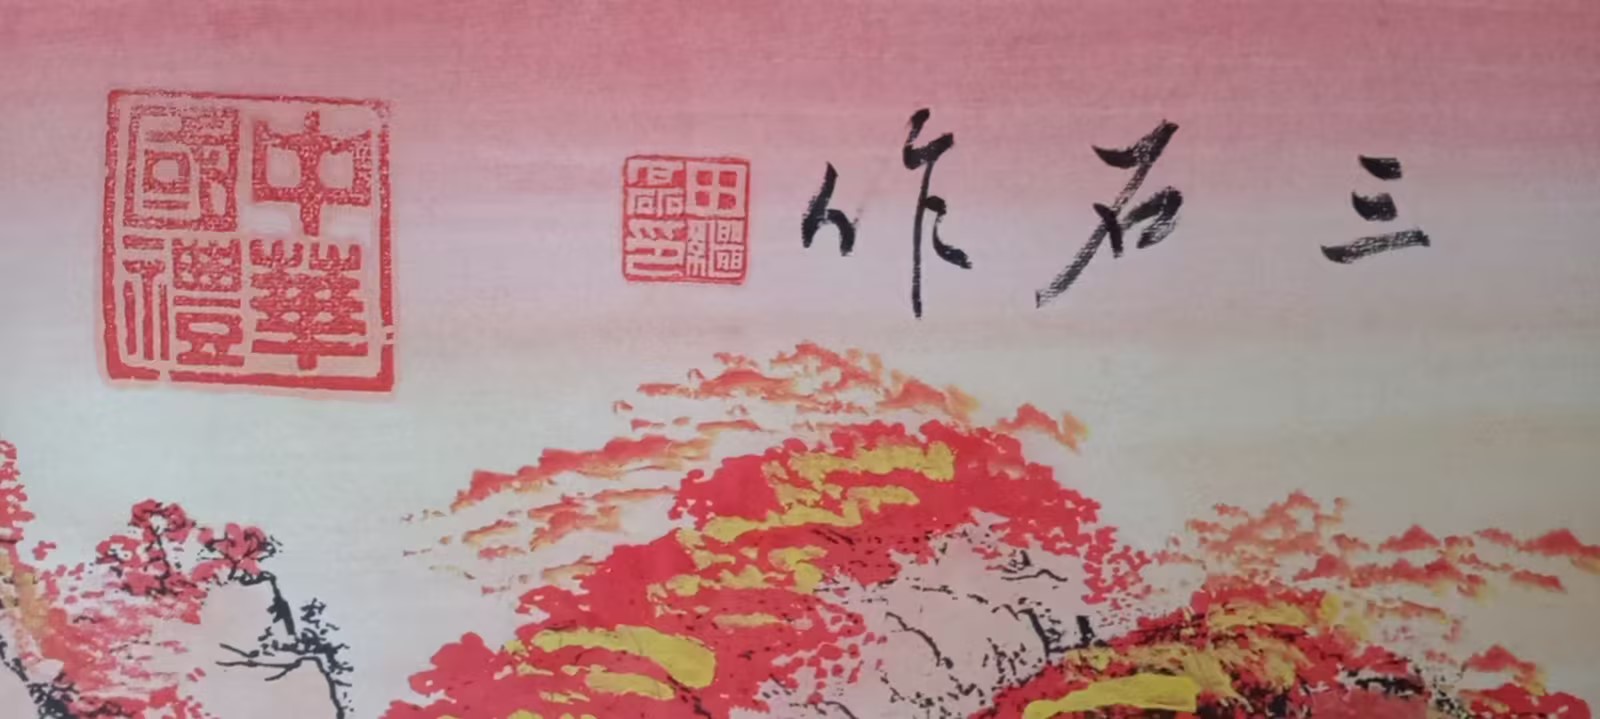 三石作
田
中華國禮